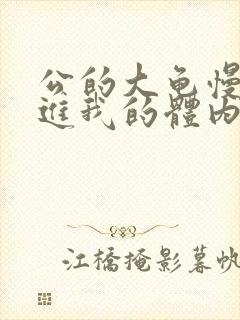 公的大龟慢
進我的體內
江橋掩影暮帆